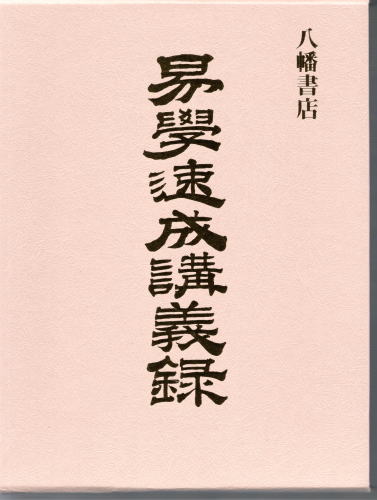 八幡書店
易學速成講義録